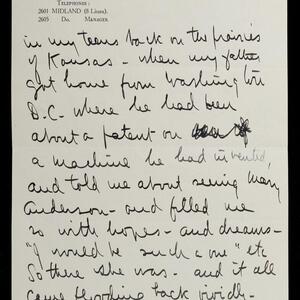 TELEPHONES:
2601 MIDLAND (8 Lines).
2605 Do. MANAGER.
in my teens back on the prairies
of Kansas - when my father
got home from Washington
D.C. where he had been
about a patent on
a machine he had invented,
and told me about seeing Mary
Anderson - and filled me
so with hopes - and dreams -
"I would be such a one" etc
So there she was - and it all
came flooding back vividly -